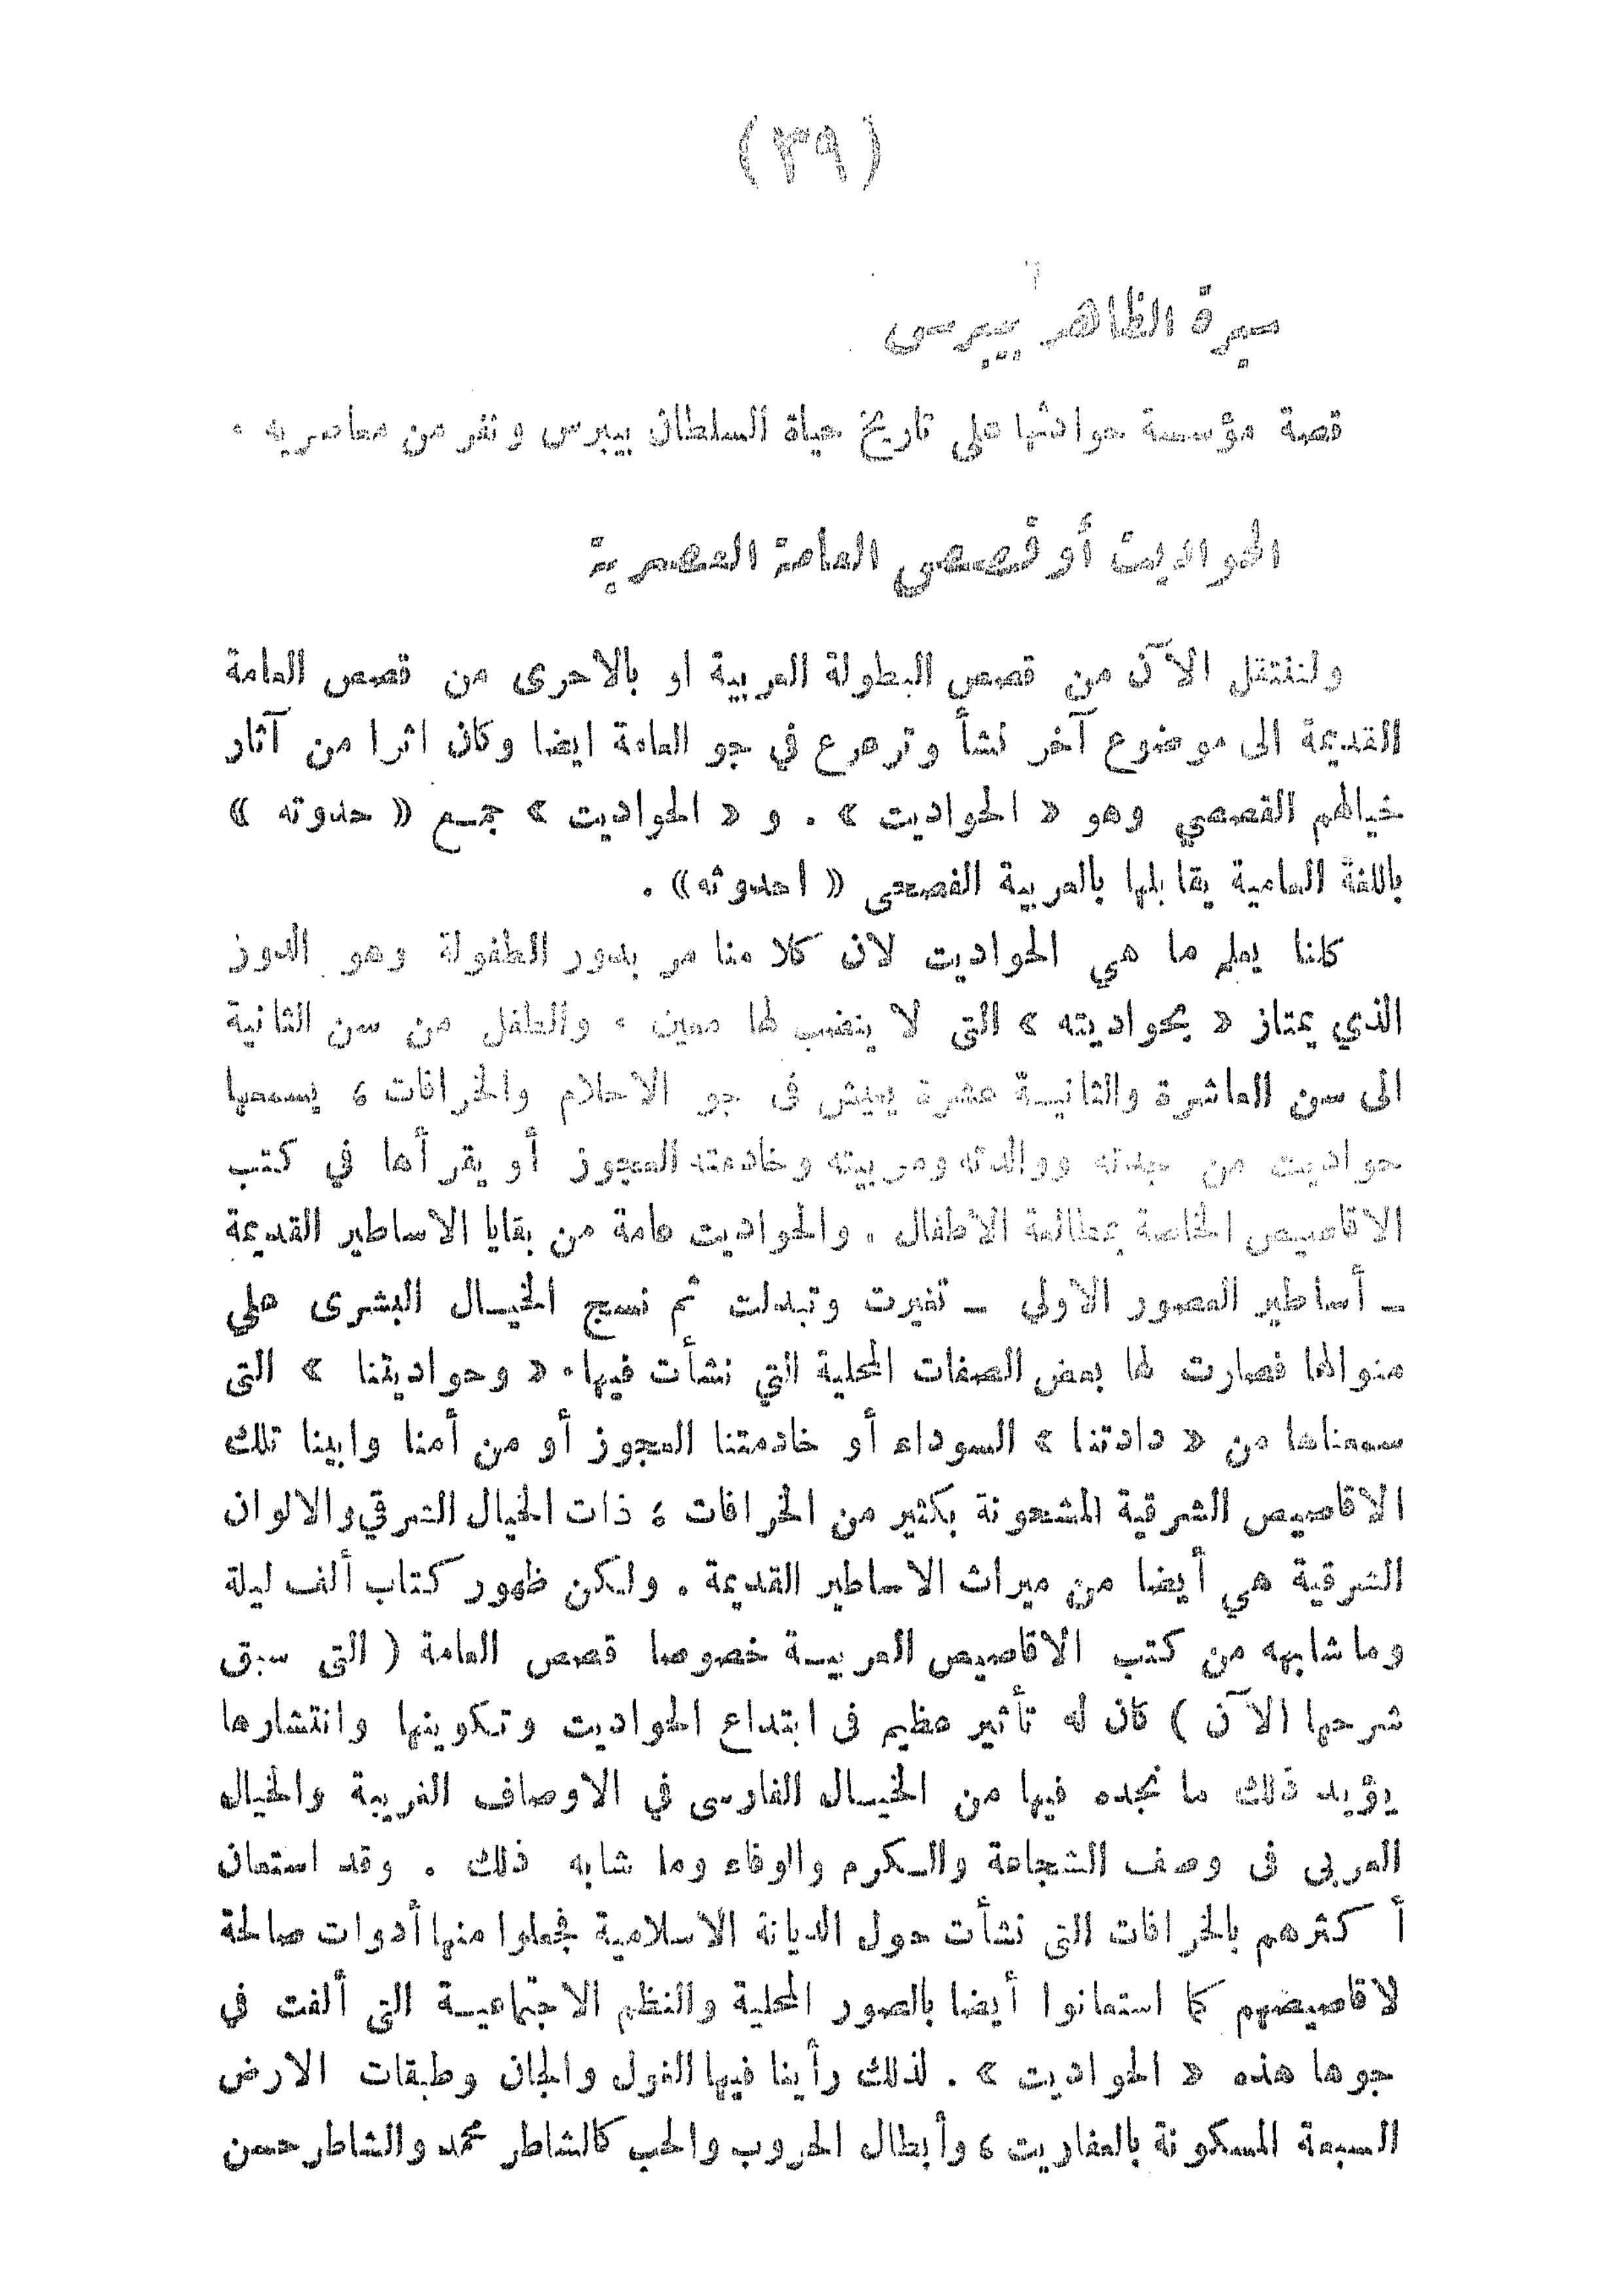 (٣٩)
سيرة الظاهر بيبرس
قصة مؤسسة حوادثها على تاريخ حياة السلطان بيبرس ونفر من معاصريه .
الحواديت أو قصص العامة العصرية
ولننتقل الآن من قصص البطولة العربية او بالاحرى من قصص العامة
القديمة الى موضوع آخر نشأ وترعرع في جو العامة ايضا وكان اثرا من آثار
خيالهم القصصي وهو « الحواديت » . و « الحواديت » جمع « حدوته »
باللغة العامية يقابلها بالعربية الفصحى « احدوثه» .
كلنا يعلم ما هي الحواديت لان كلا منا مر بدور الطفولة وهو الدور
الذي يمتاز « بحواديته » التى لا ينضب لها معين . والطفل من سن الثانية
الى سن العاشرة والثانية عشرة يعيش فى جو الاحلام والخرافات ، يسمعها
حواديت من جدته ووالدته ومربيته وخادمته العجوز أو يقرأها في كتب
الاقاصيص الخاصة بمطالعة الاطفال . والحواديت عامة من بقايا الاساطير القديمة
ـ أساطير العصور الاولي ـ تغيرت وتبدلت ثم نسج الخيال البشرى علي
منوالها فصارت لها بعض الصفات المحلية التي نشأت فيها. « وحواديتنا » التى
سمعناها من « دادتنا » السوداء أو خادمتنا العجوز أو من أمنا وابينا تلك
الاقاصيص الشرقية المشحونة بكثير من الخرافات ؛ ذات الخيال الشرقي والالوان
الشرقية هي أيضا من ميراث الاساطير القديمة . ولكن ظهور كتاب ألف ليلة
وما شابهه من كتب الاقاصيص العربية خصوصا قصص العامة ( التى سبق
شرحها الآن ) كان له تأثير عظيم فى ابتداع الحواديت وتكوينها وانتشارها
يؤيد ذلك ما نجده فيها من الخيال الفارسى في الاوصاف الغريبة والخيال
العربى فى وصف الشجاعة والكرم والوفاء وما شابه ذلك . وقد استعان
أكثرهم بالخرافات التى نشأت حول الديانة الاسلامية فجعلوا منها أدوات صالحة
لاقاصيصهم كما استعانوا أيضا بالصور المحلية والنظم الاجتماعية التى ألفت في
جوها هذه « الحواديت » . لذلك رأينا فيها الغول والجان وطبقات الارض
السبعة المسكونة بالعفاريت ، وأبطال الحروب والحب كالشاطر محمد والشاطر حسن